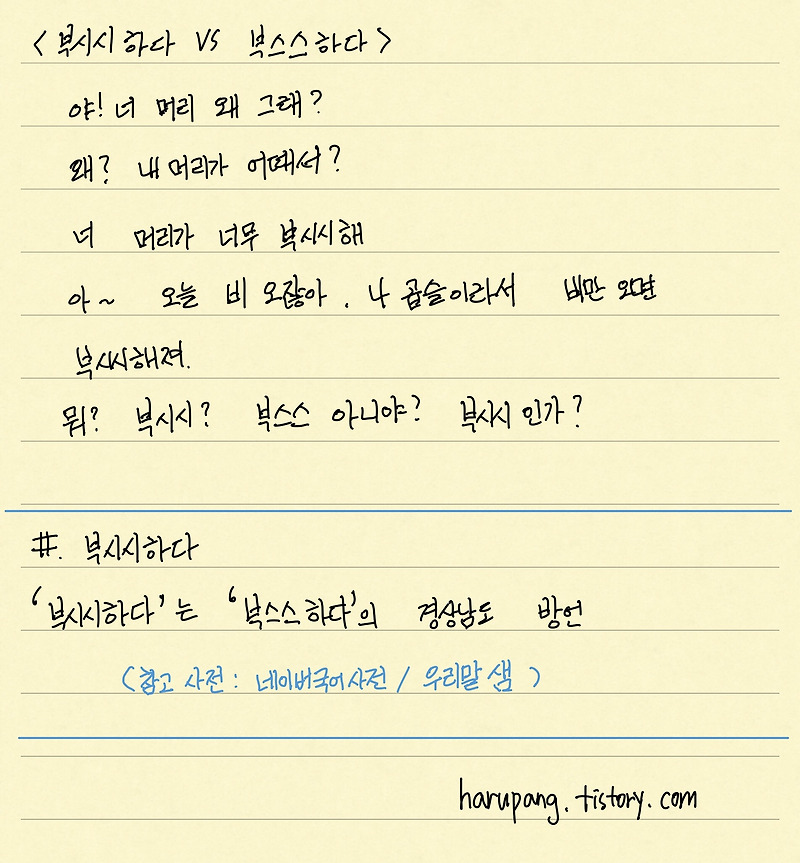 <부시시하다 VS 부스스하다>
야! 너 머리 왜 그래?
왜? 내 머리가 어때서?
너 머리가 너무 부시시해
아~ 오늘 비 오잖아. 나 곱슬이라서 비만 오면
부시시해져.
뭐? 부시시? 부스스 아니야? 부시시인가?
#. 부시시하다
'부시시하다'는 '부스스하다'의 경상남도 방언
(참고 사전 : 네이버국어사전 / 우리말샘)
harupang.tistory.com